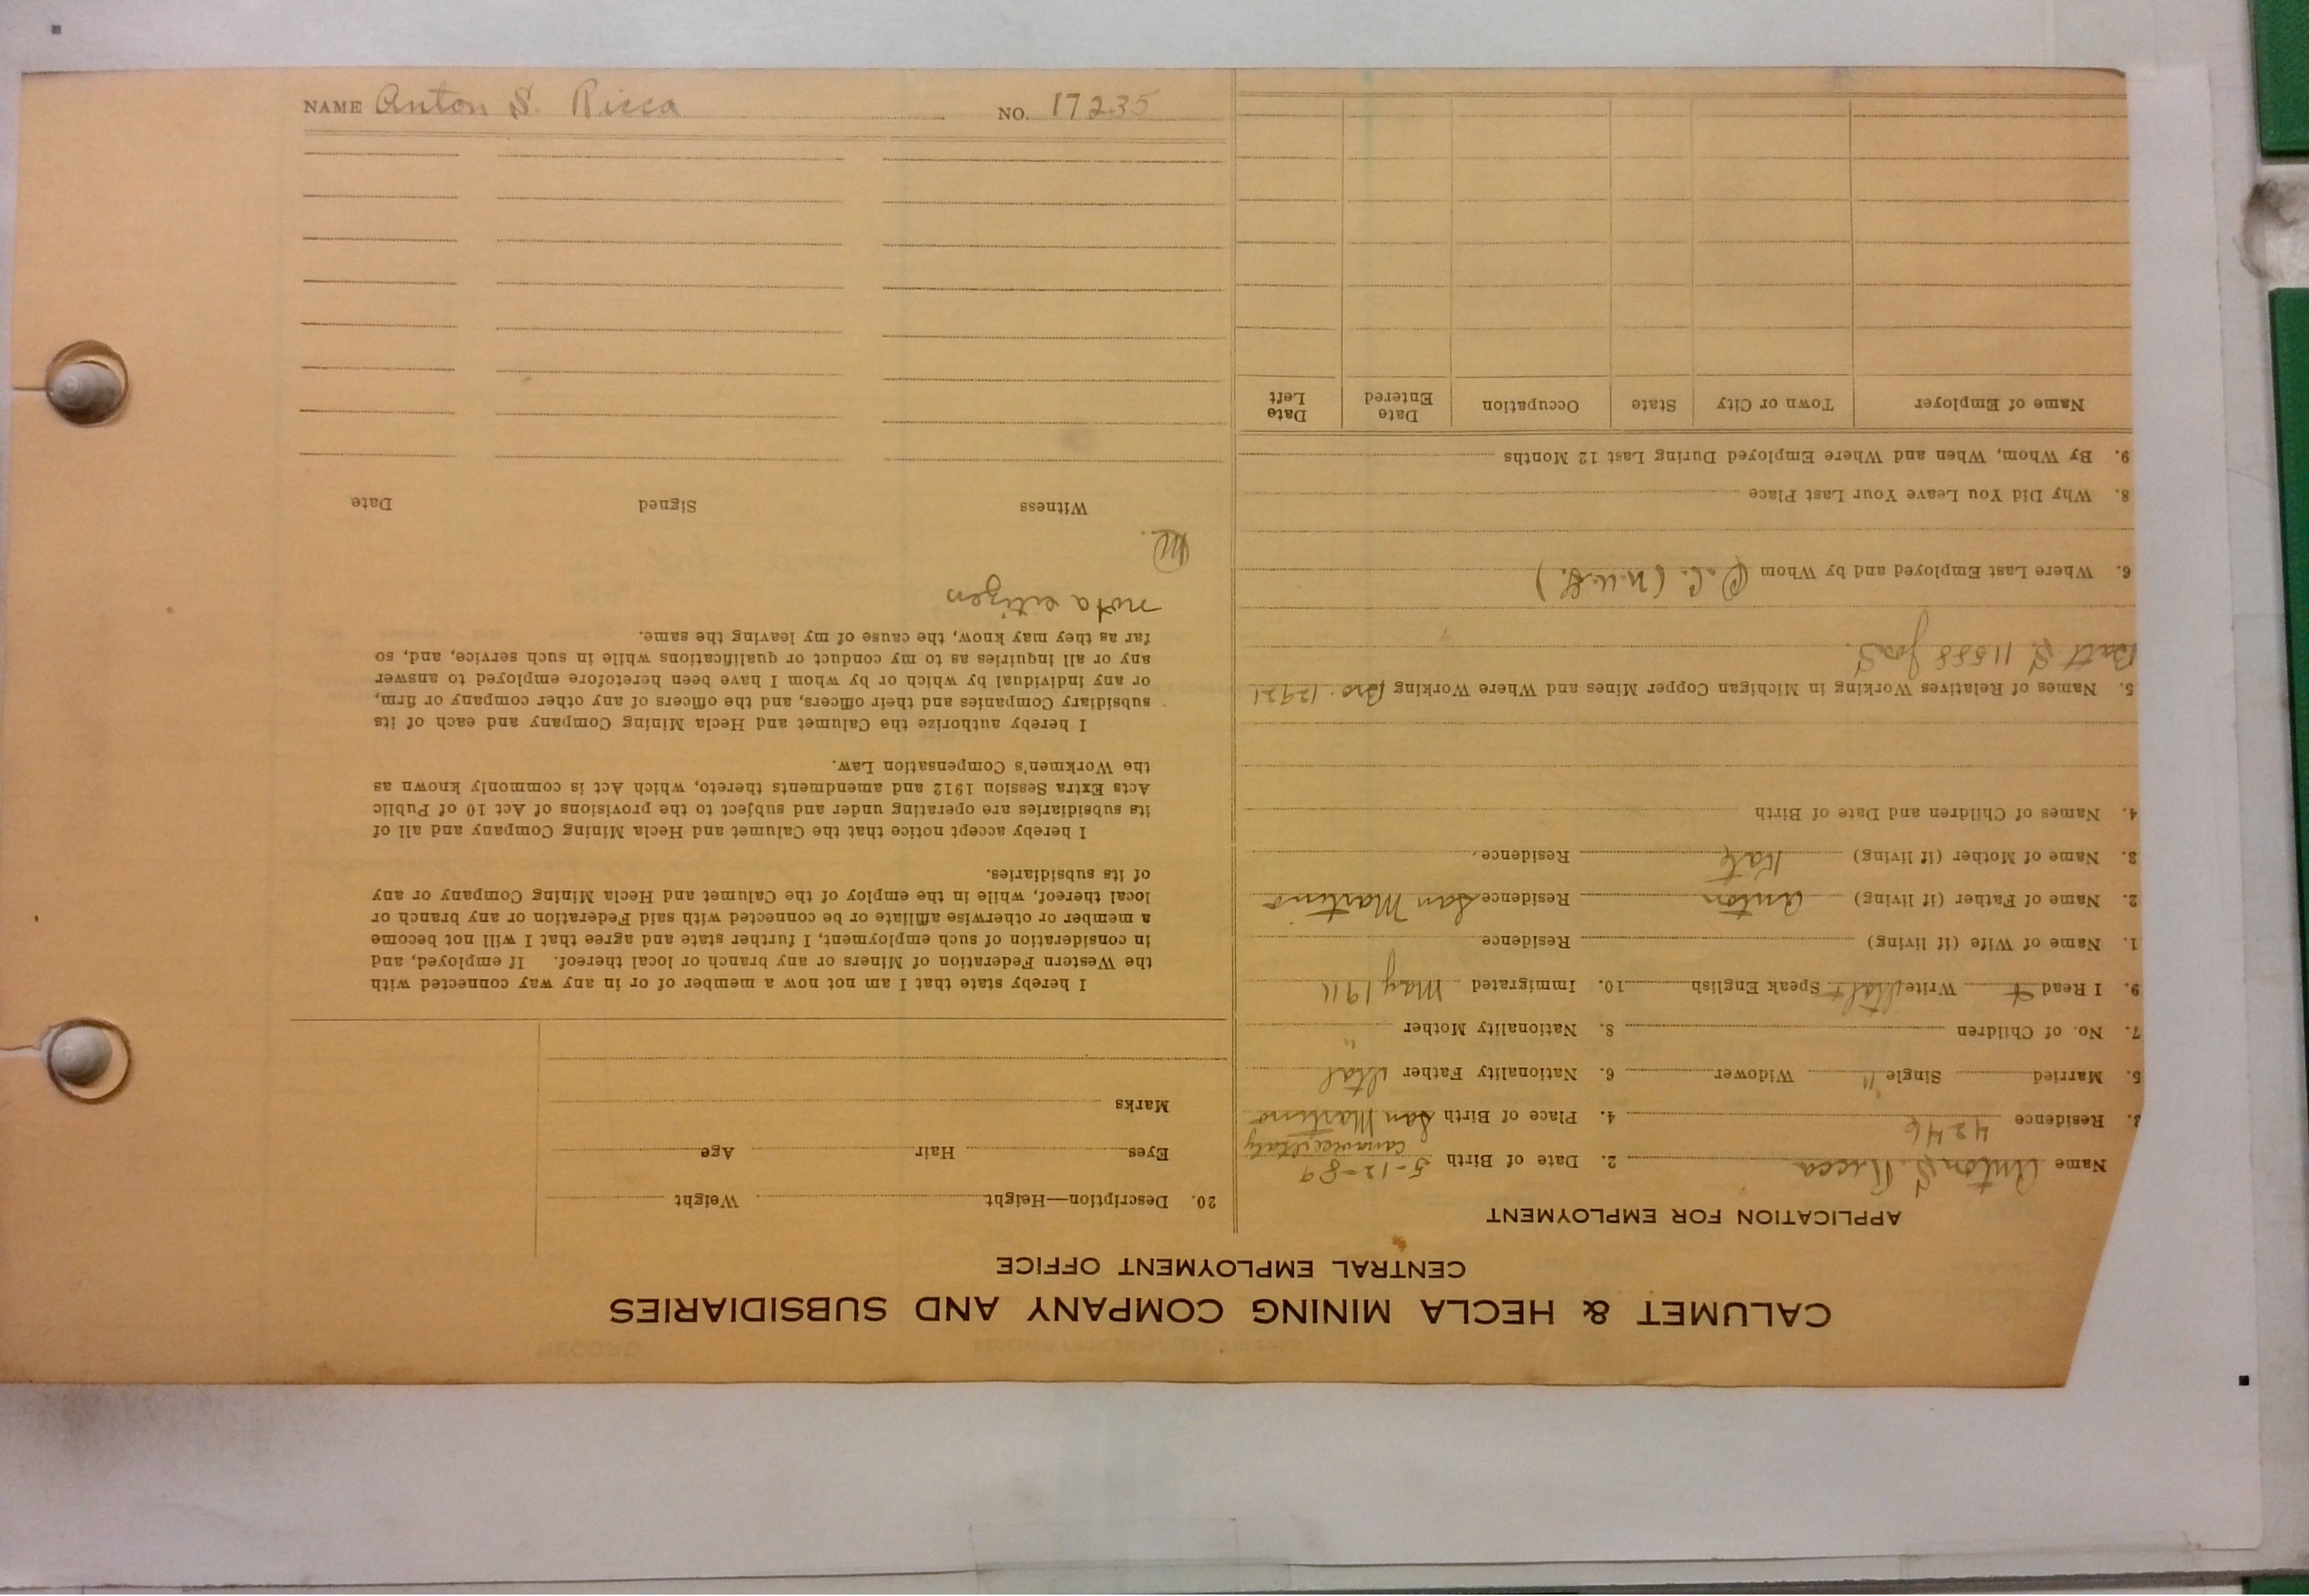 NAME Anton S. Ricca NO. 17235
CALUMET & HECLA MINING COMPANY AND SUBSIDIARIES
CENTRAL EMPLOYMENT OFFICE
APPLICATION FOR EMPLOYMENT
Name Anton S. Ricca 2. Date of Birth 5-12-89
3. Residence 4246 4. Place of Birth San Martino
Italy
5. Married Single " Widower 6. Nationality Father Ital
7. No. of Children 8. Nationality Mother "
9. I Read + Write Ital + Speak English 10. Immigrated May 1911
1. Name of Wife (if living) Residence
2. Name of Father (if living) Anton Residence San Martino
3. Name of Mother (if living) Kate Residence
4. Names of Children and Date of Birth
5. Names of Relatives Working in Michigan Copper Mines and Where Working Bro. 12921
Batt S. 11588 Jos S.
6. Where Last Employed and by Whom
8. Why Did You Leave Your Last Place
9. By Whom, When and Where Employed During Last 12 Months
Name of Employer Town or City State Occupation Date Entered Date Left
20. Description—Height Weight
Eyes Hair Age
Marks
I hereby state that I am not now a member of or in any way connected with
the Western Federation of Miners or any branch or local thereof. If employed, and
in consideration of such employment, I further state and agree that I will not become
a member or otherwise affiliate or be connected with said Federation or any branch or
local thereof, while in the employ of the Calumet and Hecla Mining Company or any
of its subsidiaries.
I hereby accept notice that the Calumet and Hecla Mining Company and all of
its subsidiaries are operating under and subject to the provisions of Act 10 of Public
Acts Extra Session 1912 and amendments thereto, which Act is commonly known as
the Workmen's Compensation Law.
I hereby authorize the Calumet and Hecla Mining Company and each of its
subsidiary Companies and their officers, and the officers of any other company or firm,
or any individual by which or by whom I have been heretofore employed to answer
any or all inquiries as to my conduct or qualifications while in such service, and, so
far as they may know, the cause of my leaving the same.
not a citizen
Witness Signed Date